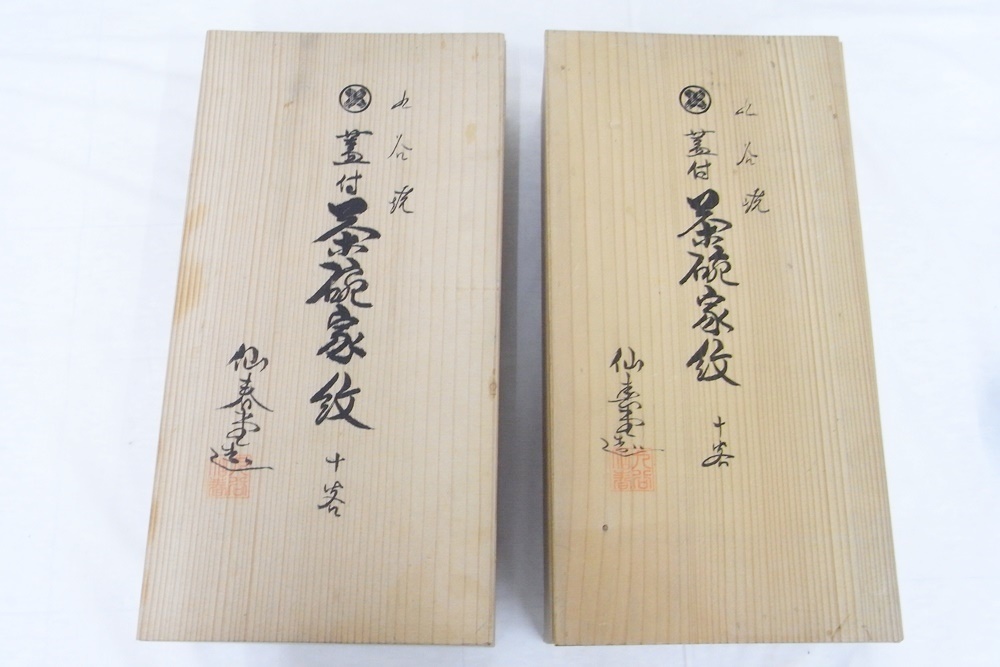 九谷焼
蓋付
茶碗家紋
十客
仙春堂造
九谷焼
蓋付
茶碗家紋
十客
仙春堂造
九谷